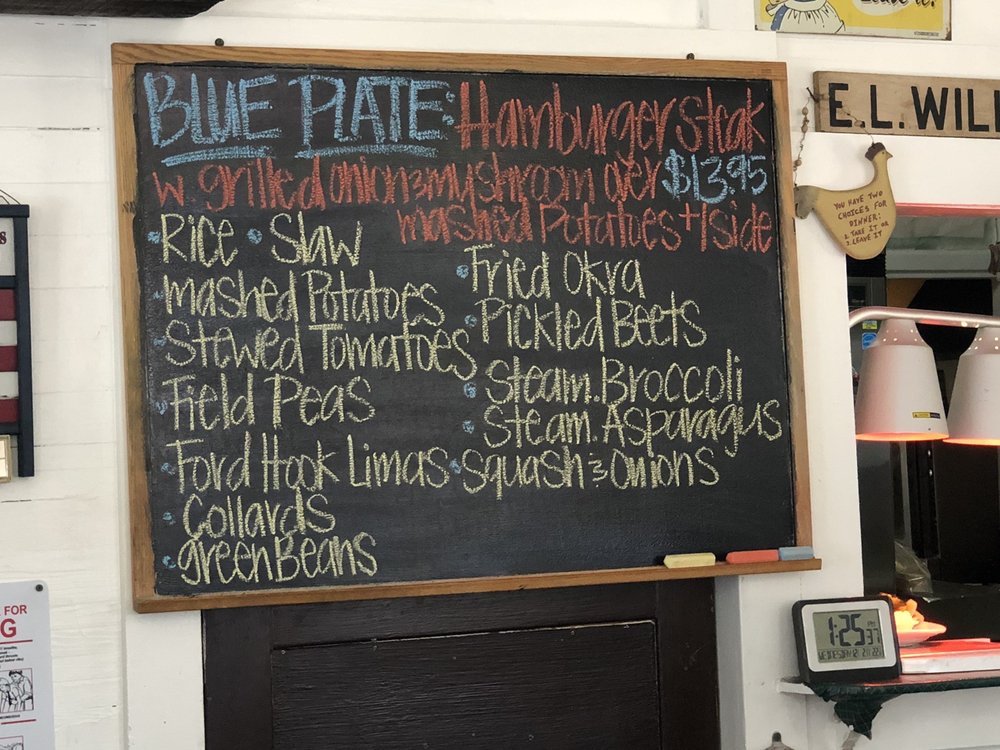 BLUE PLATE: Hamburger Steak
w grilled onion & mushroom over $13.95
mashed Potatoes + 1 side
• Rice • Slaw
• mashed Potatoes
• Stewed Tomatoes
• Field Peas
• Ford Hook Limas
• Collards
• green Beans
• Fried Okra
• Pickled Beets
• Steam. Broccoli
• Steam. Asparagus
• squash & onions
E.L.WIL
YOU HAVE TWO
CHOICES FOR
DINNER:
1. TAKE IT OR
2. LEAVE IT
FOR
G
1:25 37